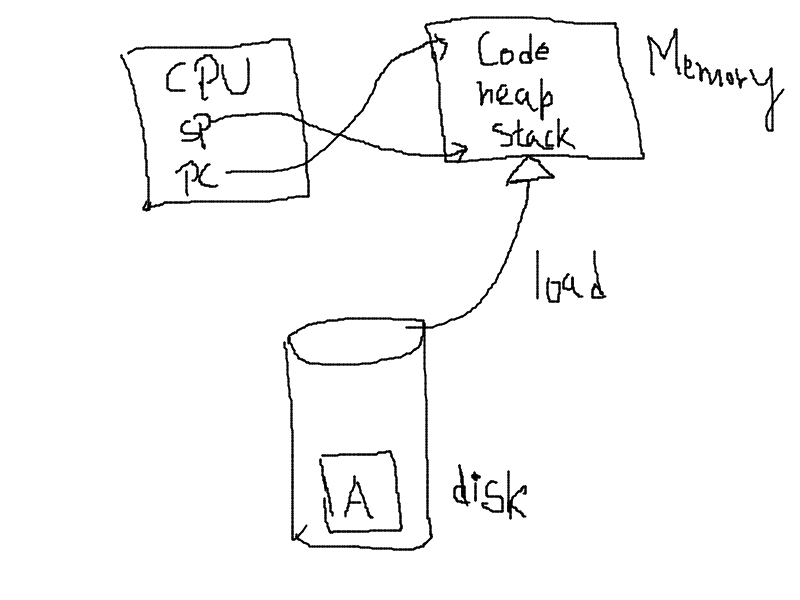 CPU
SP
PC
Code
heap
stack
Memory
load
A
disk